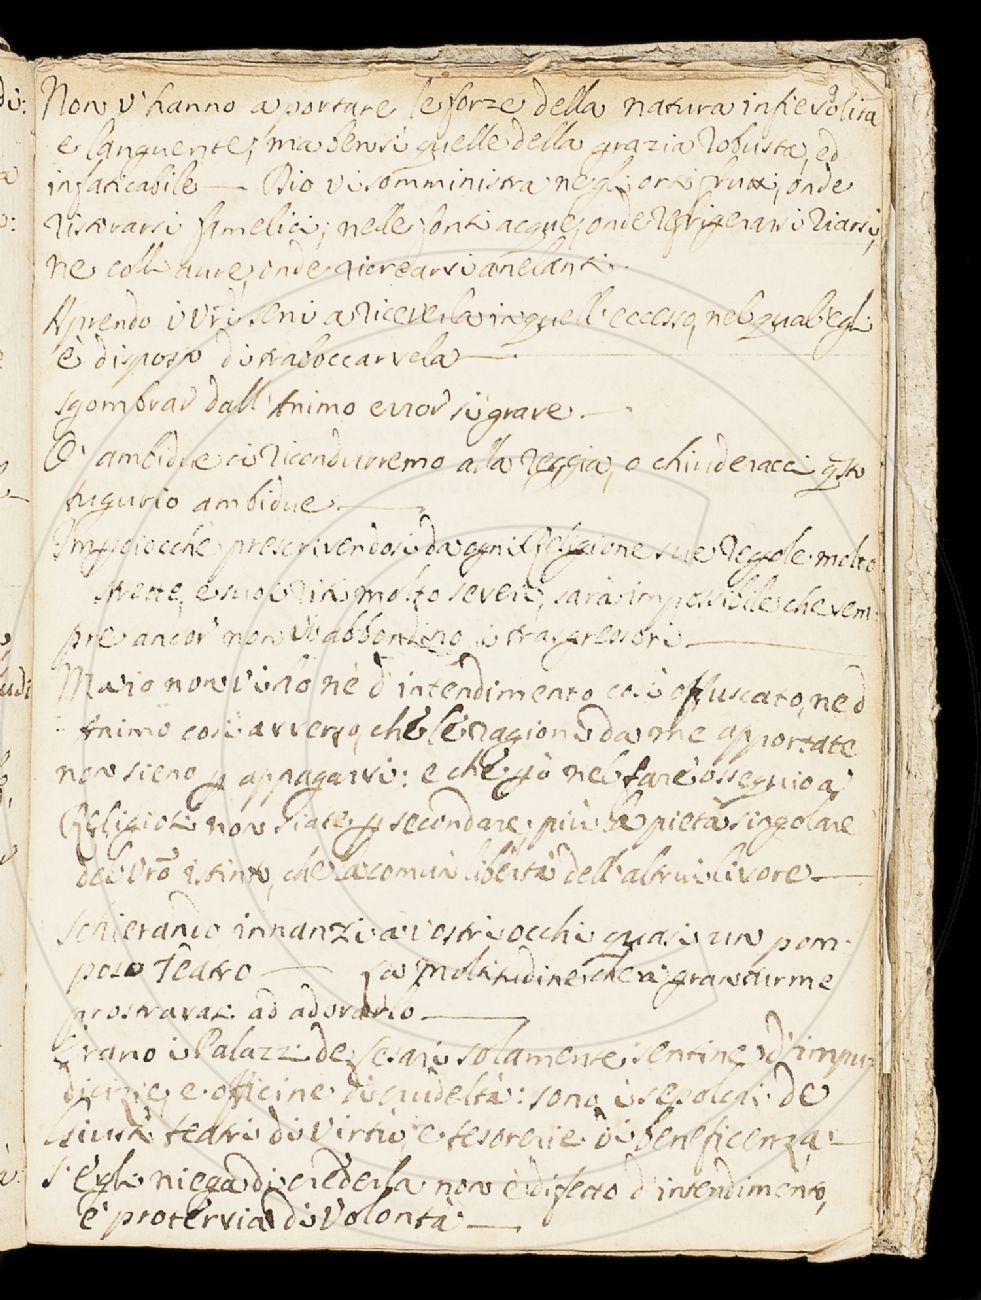 Non v'hanno a portare le forze della natura infievolita
e languente; ma bensì quelle della grazia robusta, ed
infaticabile — Dio vi somministra negli orti frutti, onde
ristorarsi famelici; nelle fonti acque, onde refrigerarsi riarsi,
ne colli aure, onde ricrearsi anelanti.
Aprendo i vri seni a riceverla in quell'eccesso, nel qual egli
è disposto di traboccarvela —
sgombrar dall'Animo error sì grave. —
O' ambidue ci ricondurremo alla Reggia, o chiuderacci qsto
tugurio ambidue —
Impciocchè prescrivendosi da ogni Religione sue regole molto
strette, e suoi riti molto severi, sarà impossibile che sem
pre ancor non vi abbondino i trasgressori —
Ma io non vi ho nè d'intendimento così offuscato, nè d
Animo così avverso, che le ragioni da me apportate
non sieno p appagarvi: e che
nel fare ossequio a
Religiosi non siate p secondare più la pietà singolare
del vro istinto, che la comun libertà dell'altrui livore —
schierando innanzi a vostri occhi quasi un pom
poso Teatro — La moltitudine che a gran turme
prostravasi ad adorarlo —
Erano i Palazzi de Cesari solamente sentine d'impu
dicizie, e officine di crudeltà: sono i sepolcri de
Giusti teatri di virtù, e tesorerie di beneficenza: —
S'egli niega di crederla non è difetto d'intendimento,
è protervia di volontà —